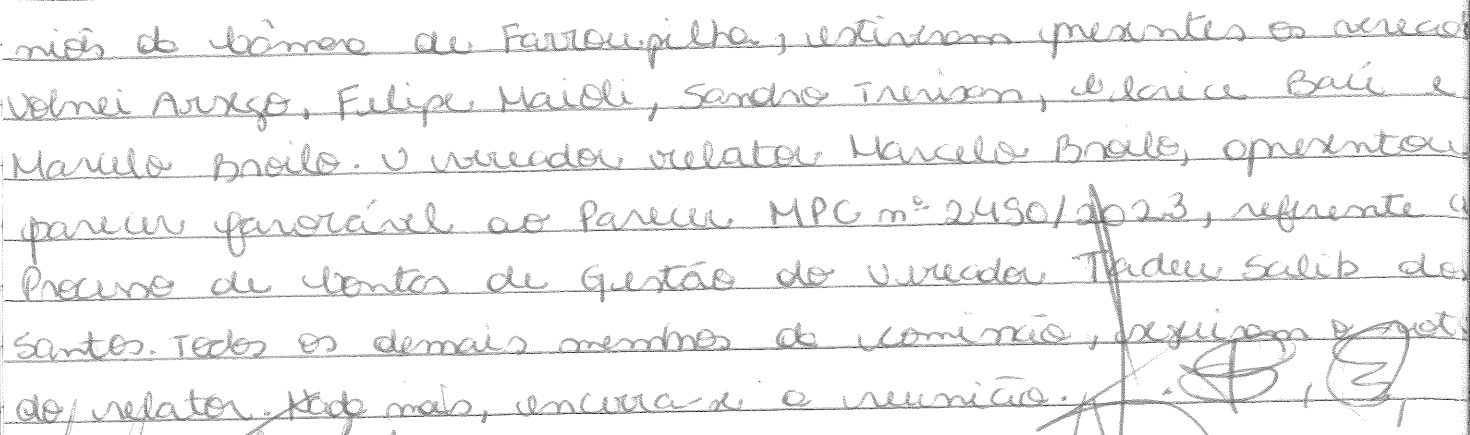 niões da Câmara de Farroupilha, estiveram presentes os veread
Volnei Arsego, Felipe Maioli, Sandro Trevisan, Clarice Baú e
Marcelo Broilo. O vereador relator Marcelo Broilo, apresentou
parecer favorável ao Parecer MPC nº 2490/2023, referente a
Processo de Contas de Gestão do Vereador Tadeu Salib dos
Santos. Todos os demais membros da comissão, seguiram o vot
do relator. Nada mais, encerra-se a reunião.